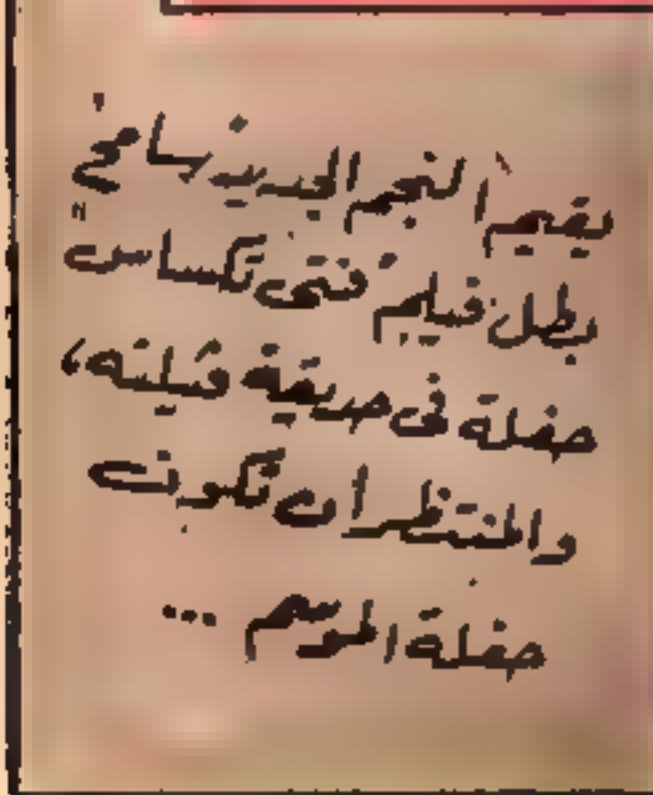 يقيم النجم الجديد سامح
بطل فيلم فتى تكساس
حفلة فى حديقة ڤيلته،
والمنتظر ان تكون
حفلة الموسم ...